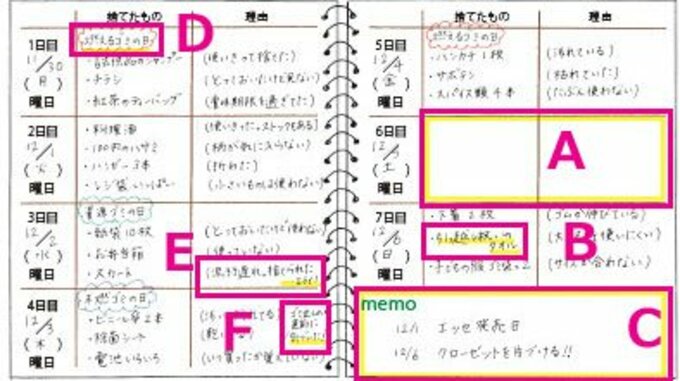 捨てたもの
理由
1日目
11/30
(月)
曜日
燃えるゴミの日
・チラシ
・紅茶のティーバッグ
(使いきって捨てた)
(とっておいたけど見ない)
(賞味期限を過ぎてた)
2日目
12/1
(火)
曜日
・料理酒
・100円のハサミ
・ハンガー3本
・レジ袋いっぱい
(使いきった。ストックもある)
(柄が気に入らない)
(折れた)
(小さいものは使わない)
3日目
12/2
(水)
曜日
資源ゴミの日
・紙袋10枚
・お弁当箱
・スカート
(とっておいたけど使わない)
(使っていない)
(流行遅れ。捨てられた
D
E
4日目
12/3
(木)
曜日
不燃ゴミの日
・ビニール傘2本
・除菌シート
・電池いろいろ
(いつ買ったか覚えてない)
F
捨てたもの
理由
5日目
12/4
(金)
曜日
燃えるゴミの日
・ハンカチ1枚
・サボテン
・スパイス類4本
(汚れている)
(枯れていた)
(たぶん使わない)
6日目
12/5
(土)
曜日
A
7日目
12/6
(日)
曜日
・下着2枚
タオル
(ゴムが伸びている)
使いにくい)
(サイズが合わない)
B
memo
12/1 エッセ発売日
12/6 クローゼットを片づける!!
C